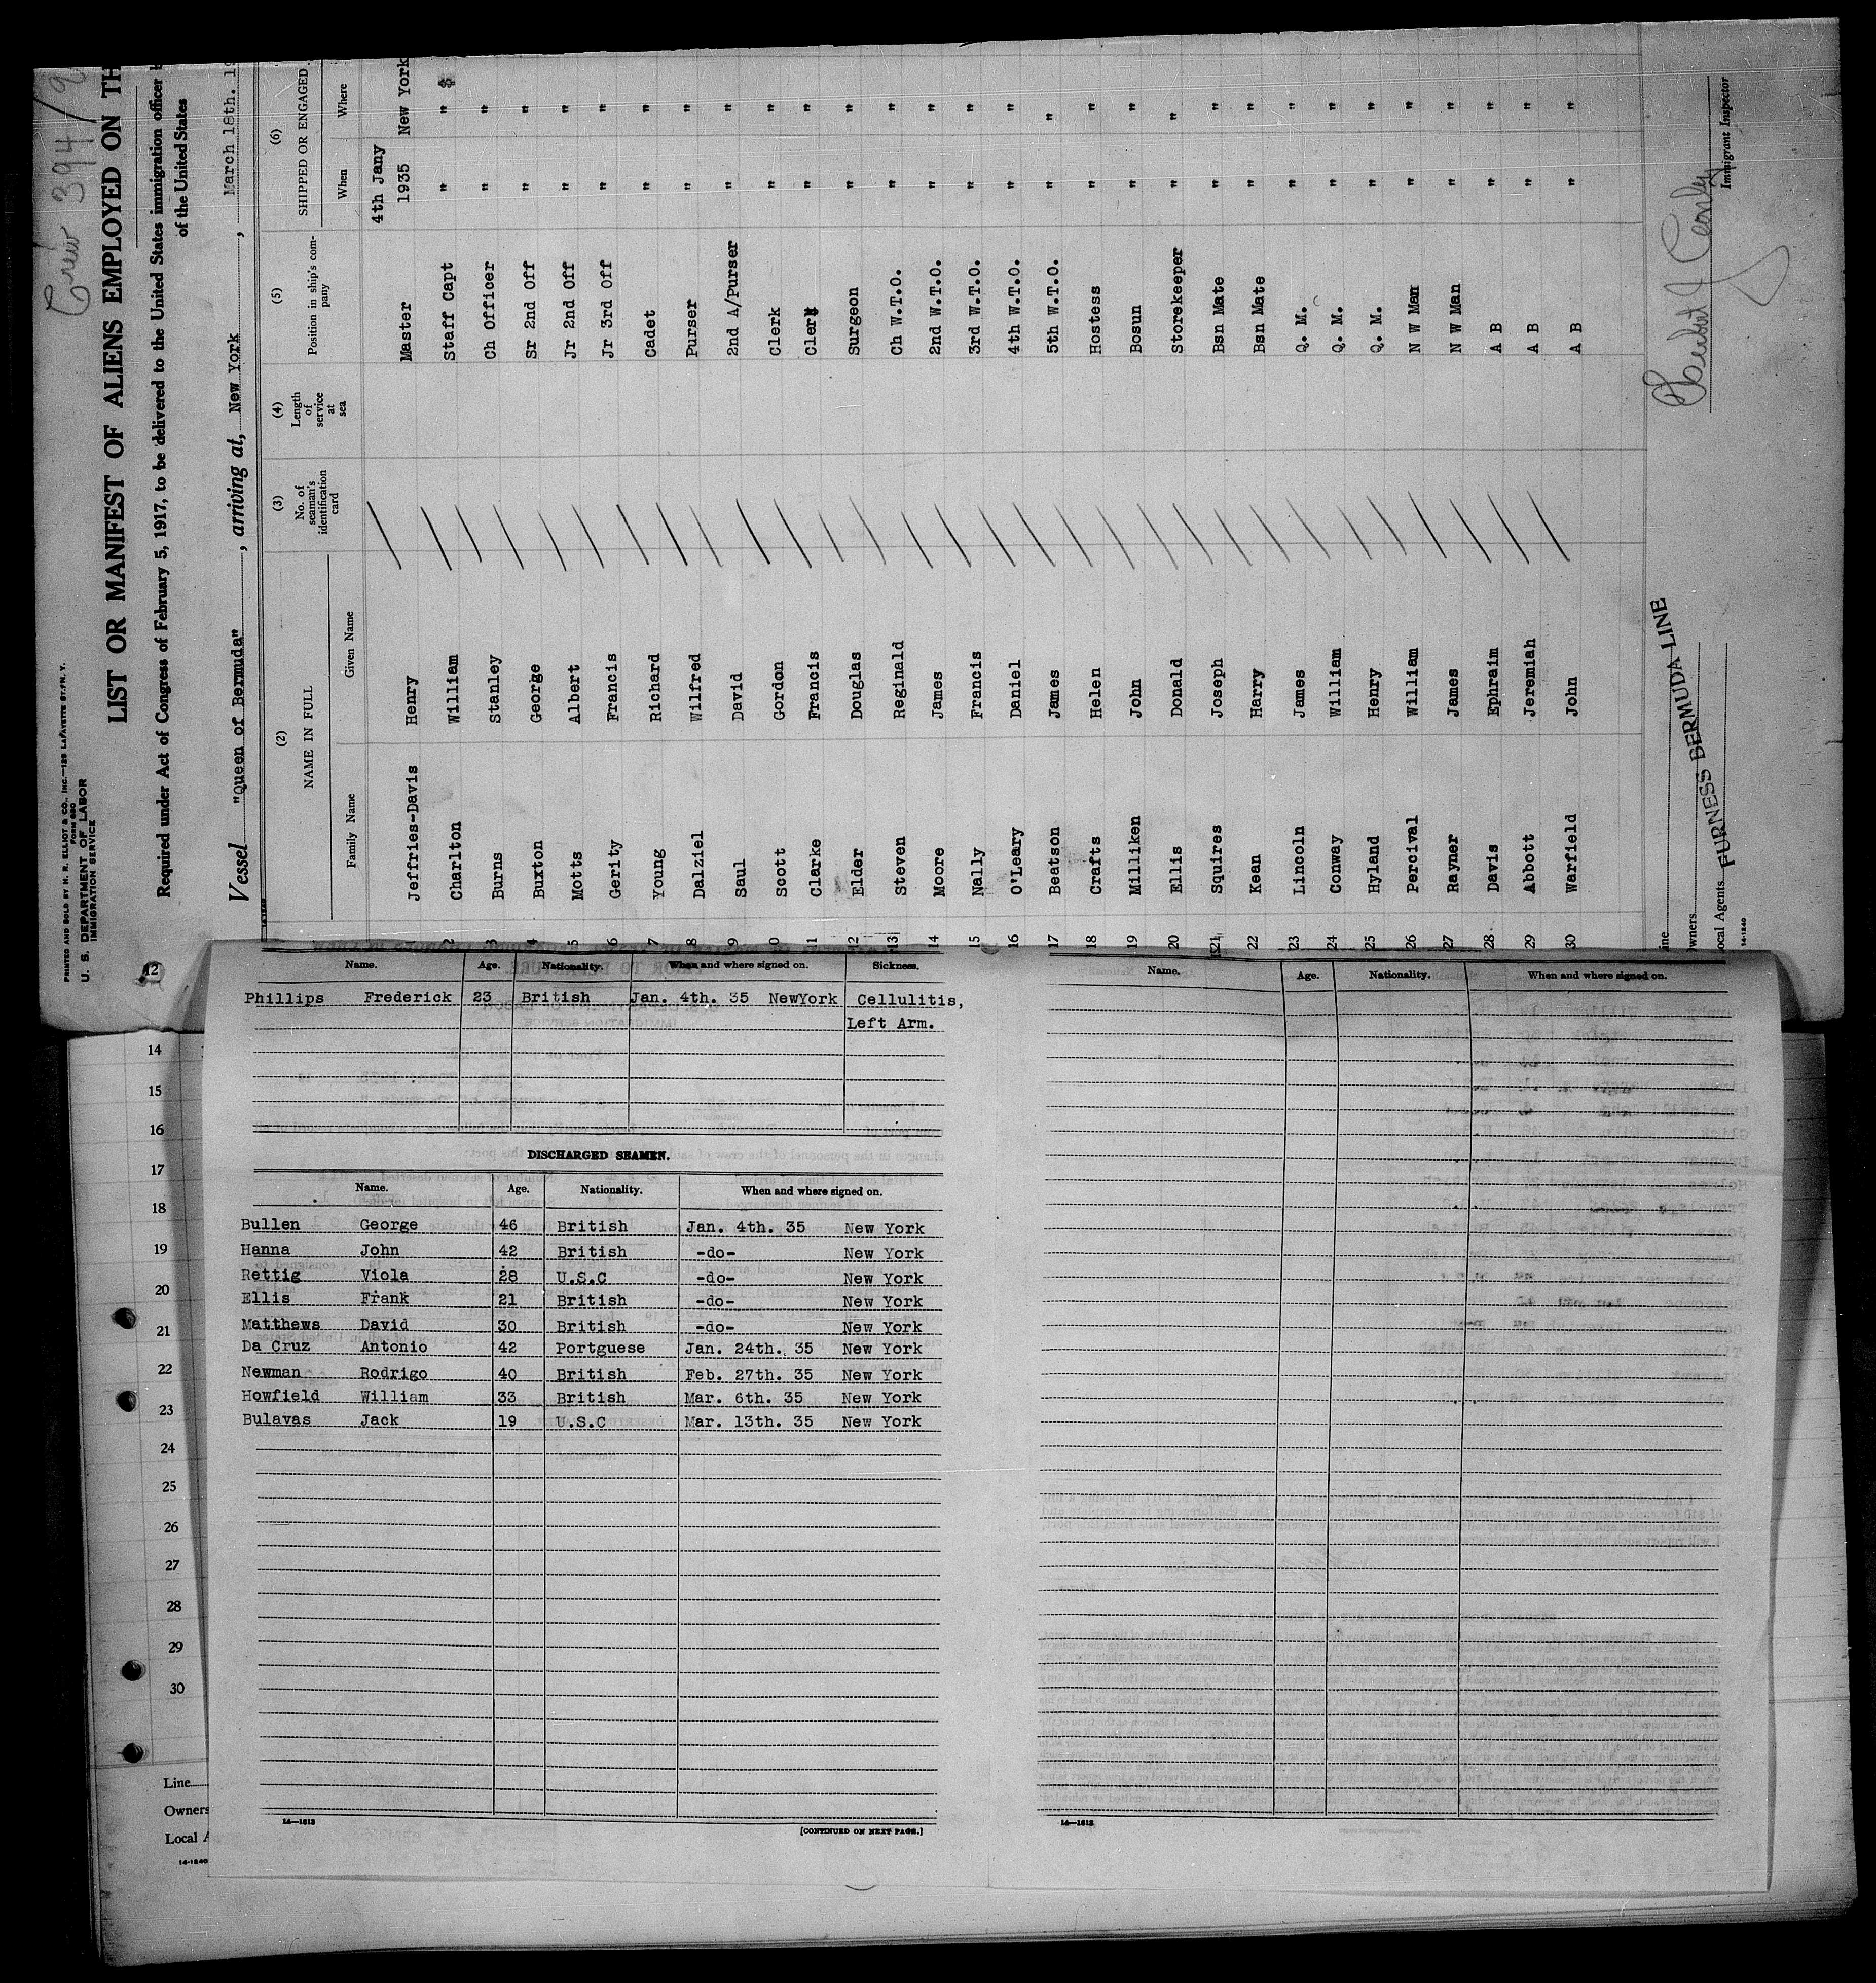 Crew 394/9
PRINTED AND SOLD BY H. R. ELLIOT & CO., INC.—129 LAFAYETTE ST., N. Y.
FORM 680
U. S. DEPARTMENT OF LABOR
IMMIGRATION SERVICE
LIST OR MANIFEST OF ALIENS EMPLOYED ON TH
Required under Act of Congress of February 5, 1917, to be delivered to the United States immigration officer
of the United States
Vessel "Queen of Bermuda", arriving at, New York, March 18th. 19
(2) (3) (4) (5) (6)
NAME IN FULL No. of seaman's identification card Length of service at sea Position in ship's company SHIPPED OR ENGAGED
Family Name Given Name When Where
4th Jany
Jeffries-Davis Henry Master 1935 New York
2 Charlton William Staff Capt " "
3 Burns Stanley Ch Officer " "
4 Buxton George Sr 2nd Off " "
5 Motts Albert Jr 2nd Off " "
6 Gerity Francis Jr 3rd Off " "
7 Young Richard Cadet " "
8 Dalziel Wilfred Purser " "
9 Saul David 2nd A/Purser " "
0 Scott Gordon Clerk " "
11 Clarke Francis Clerk " "
12 Elder Douglas Surgeon " "
13 Steven Reginald Ch W.T.O. " "
14 Moore James 2nd W.T.O. " "
15 Nally Francis 3rd W.T.O. " "
16 O'Leary Daniel 4th W.T.O. " "
17 Beatson James 5th W.T.O. " "
18 Crafts Helen Hostess " "
19 Milliken John Bosun " "
20 Ellis Donald Storekeeper " "
21 Squires Joseph Bsn Mate " "
22 Kean Harry Bsn Mate " "
23 Lincoln James Q. M. " "
24 Conway William Q. M. " "
25 Hyland Henry Q. M. " "
26 Percival William N W Man " "
27 Rayner James N W Man " "
28 Davis Ephraim A B " "
29 Abbott Jeremiah A B " "
30 Warfield John A B " "
ine
Owners
Local Agents FURNESS BERMUDA LINE
14-1240
Immigrant Inspector
12
Name. Age. Nationality. When and where signed on. Sickness.
Phillips Frederick 23 British Jan. 4th. 35 NewYork Cellulitis,
Left Arm.
DISCHARGED SEAMEN.
Name. Age. Nationality. When and where signed on.
Bullen George 46 British Jan. 4th. 35 New York
Hanna John 42 British -do- New York
Rettig Viola 28 U.S.C -do- New York
Ellis Frank 21 British -do- New York
Matthews David 30 British -do- New York
Da Cruz Antonio 42 Portguese Jan. 24th. 35 New York
Newman Rodrigo 40 British Feb. 27th. 35 New York
Howfield William 33 British Mar. 6th. 35 New York
Bulavas Jack 19 U.S.C Mar. 13th. 35 New York
14—1613
[CONTINUED ON NEXT PAGE.]
Name. Age. Nationality. When and where signed on.
14—1613
14
15
16
17
18
19
20
21
22
23
24
25
26
27
28
29
30
Line
Owners
Local A
14-1240